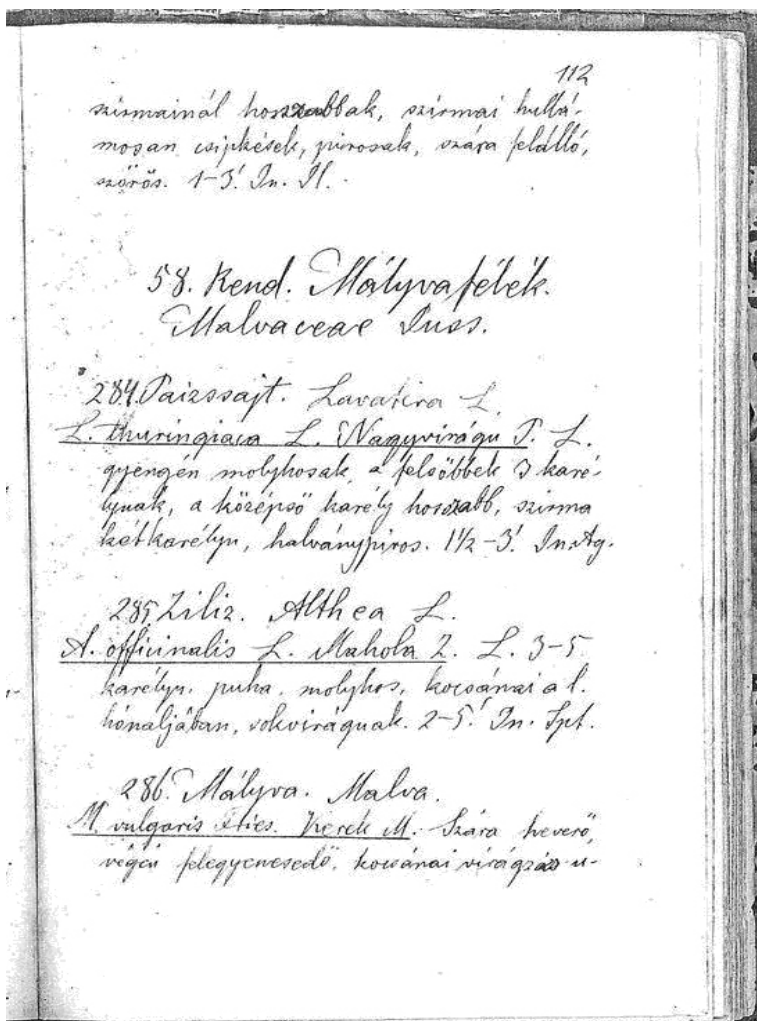 112
szirmainál hosszabbak, szirmai hullá-
mosan csipkések, pirosak, szára felálló,
szőrös. 1-3.' In. Jl.
58. Rend. Mályvafélék.
Malvaceae Juss.
284. Paizssajt. Lavatera L.
L. thuringiaca L. Nagyvirágu P. L.
gyengén molyhosak, a felsőbbek 3 karé-
lyuak, a középső karély hosszabb, szirma
kétkarélyu, halványpiros. 1½-3.' In. Ag.
285. Ziliz. Althea L.
A. officinalis L. Mahola Z. L. 3-5
karélyu, puha, molyhos, kocsánai a l.
hónaljában, sokviráguak. 2-5.' In. Spt.
286. Mályva. Malva.
M. vulgaris Fries. Kerek M. Szára heverő,
végén felegyenesedő, kocsánai virágzás u-